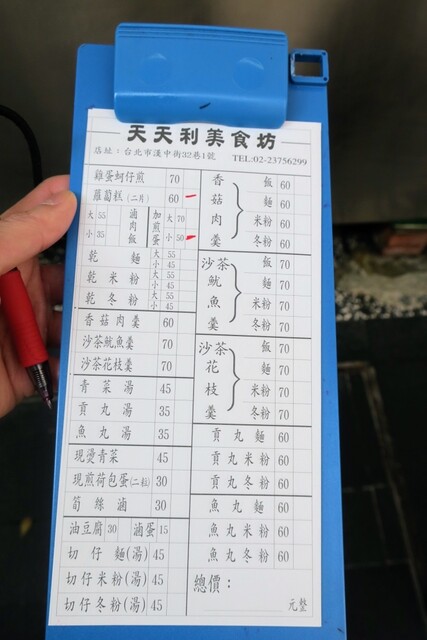 天天利美食坊
店址：台北市漢中街32巷1號 TEL:02-23756299
雞蛋蚵仔煎 70
蘿蔔糕(二片) 60
大 55 小 35 滷肉飯 加煎蛋 大 70 小 50
乾麵 大 55 小 45
乾米粉 大 55 小 45
乾冬粉 大 55 小 45
香菇肉羹 60
沙茶魷魚羹 70
沙茶花枝羹 70
青菜湯 45
貢丸湯 35
魚丸湯 35
現燙青菜 45
現煎荷包蛋(二粒) 30
筍絲滷 30
油豆腐 30 滷蛋 15
切仔麵(湯) 45
切仔米粉(湯) 45
切仔冬粉(湯) 45
香菇肉羹
飯 60
麵 60
米粉 60
冬粉 60
沙茶魷魚羹
飯 70
麵 70
米粉 70
冬粉 70
沙茶花枝羹
飯 70
麵 70
米粉 70
冬粉 70
貢丸麵 60
貢丸米粉 60
貢丸冬粉 60
魚丸麵 60
魚丸米粉 60
魚丸冬粉 60
總價：
元整